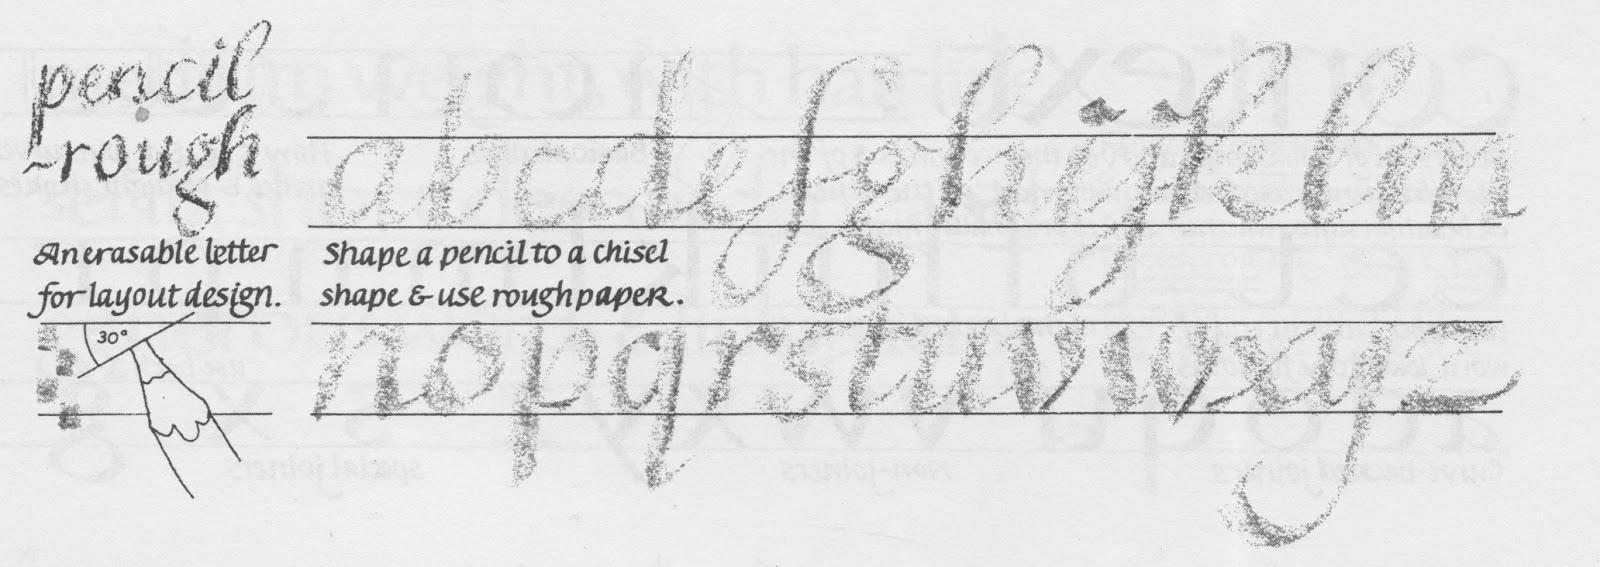 pencil
rough
An erasable letter
for layout design.
30°
abcdefghijklm
Shape a pencil to a chisel
shape & use rough paper.
nopqrstuvwxyz